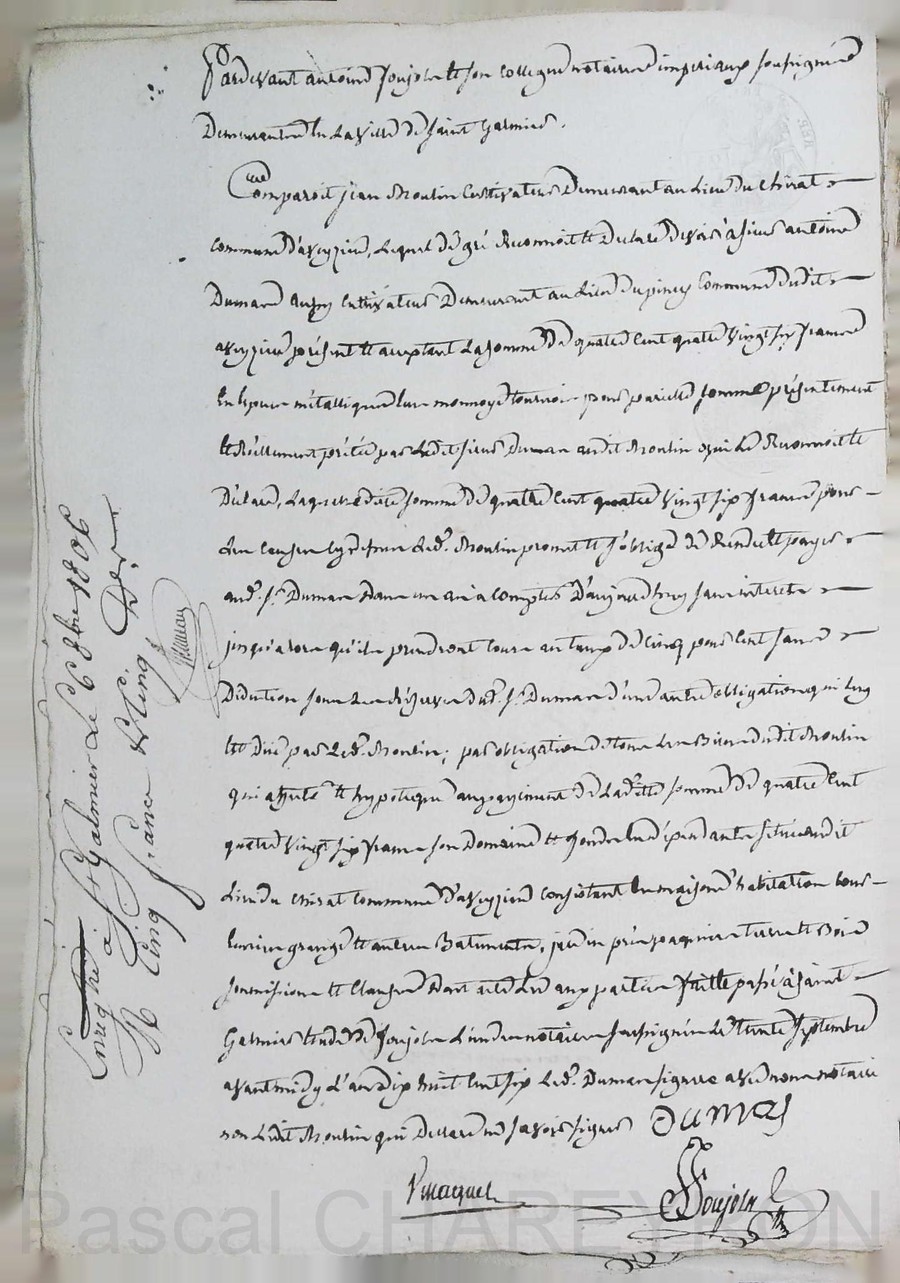 Pardevant antoine Soujoln et son collegue notaires imperiaux soussignés
Demeurants En La Ville de Saint Galmier.
Comparoit jean Moulin Cultivateur Demeurant au Lieu du Chirat
commune d'aveyzieu, Lequel de gré Reconnoit et Declare devoir à sieur antoine
Dumas aussy Cultivateur Demeurant au Lieu du piney Commune dudit
aveyzieu présent et acceptant La somme De quatre Cent quatre Vingt six francs
En Especes métalliques monnoye tournois pour pareille somme présentement
et Réellement prêtée par Ledit sieur Dumas audit Moulin qui Le Reconnoit et
Déclare, Laquelle dite somme de quatre Cent quatre Vingt six francs pour
Les Causes Led. Moulin promet et s'oblige de Rendre et payer
aud. Sr. Dumas Dans un an à Compter D'aujourd'huy sans interets
jusqu'alors qu'ils prendront Cours au taux de Cinq pour Cent sans
Diduction sous Les Réserves dud. Sr. Dumas d'une autre obligation qui Luy
Est Due par Led. Moulin; par obligation de tous Les Biens dudit Moulin
qui affecte et hypoteque au payement De Ladite somme de quatre Cent
quatre Vingt six francs son Domaine et fonds En dépendants situés audit
Lieu du Chirat Commune D'aveyzieu Consistant En maison d'habitation Cour
Ecurie grange et autres Batiments, jardin prés paquiers terres et Bois
soumissions et Clauses Dont acte Lu aux parties faitte passé à Saint
Galmier Etude de Soujoln L'un des notaires soussignés Le trente Septembre
avant midy L'an Dix huit Cent six Led. Dumas signera avec nous notaires
non Ledit Moulin qui Declare ne savoir signer Dumas
Vmaquet Soujoln
Enregtré à St Galmier Le 6 8bre 1806
R Cinq francs
Pascal CHAREYRON